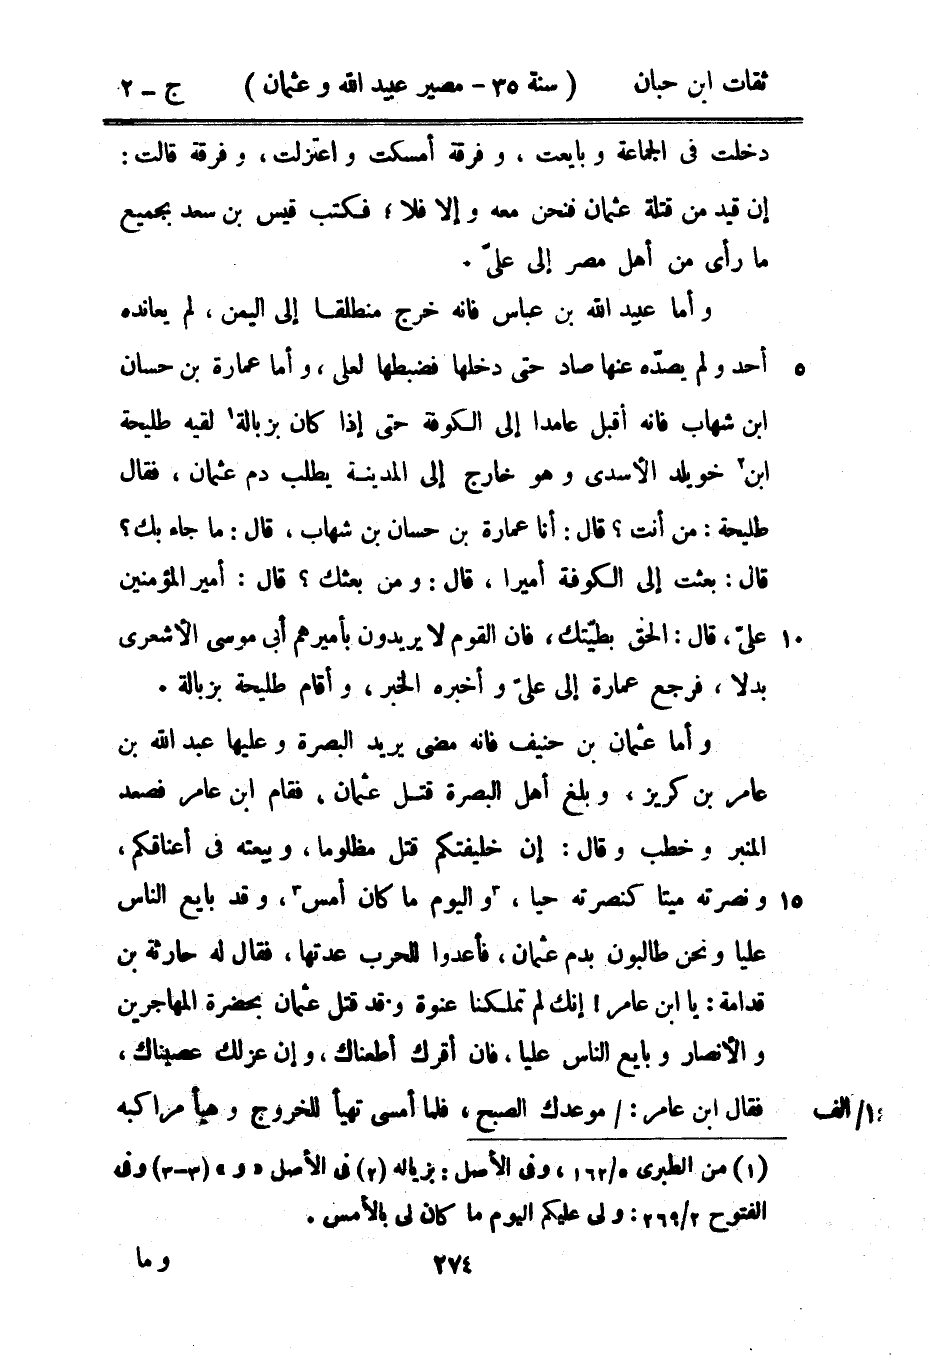 ثقات ابن حبان ( سنة ٣٥ - مصير عبيد الله و عثمان ) ج - ٢
دخلت فى الجماعة و بايعت ، و فرقة أمسكت و اعتزلت ، و فرقة قالت :
إن قيد من قتلة عثمان فنحن معه و إلا فلا ؛ فكتب قيس بن سعد بجميع
ما رأى من أهل مصر إلى علىّ .
و أما عبيد الله بن عباس فانه خرج منطلقا إلى اليمن ، لم يعانده
٥ أحد و لم يصدّه عنها صاد حتى دخلها فضبطها لعلى ، و أما عمارة بن حسان
ابن شهاب فانه أقبل عامدا إلى الكوفة حتى إذا كان بزبالة١ لقيه طليحة
ابن٢ خويلد الأسدى و هو خارج إلى المدينة يطلب دم عثمان ، فقال
طليحة : من أنت ؟ قال : أنا عمارة بن حسان بن شهاب ، قال : ما جاء بك ؟
قال : بعثت إلى الكوفة أميرا ، قال : و من بعثك ؟ قال : أمير المؤمنين
١٠ علىّ ، قال : الحق بطيّتك ، فان القوم لا يريدون بأميرهم أبى موسى الأشعرى
بدلا ، فرجع عمارة إلى علىّ و أخبره الخبر ، و أقام طليحة بزبالة .
و أما عثمان بن حنيف فانه مضى يريد البصرة و عليها عبد الله بن
عامر بن كريز ، و بلغ أهل البصرة قتل عثمان ، فقام ابن عامر فصعد
المنبر و خطب و قال : إن خليفتكم قتل مظلوما ، و بيعته فى أعناقكم ،
١٥ و نصرته ميتا كنصرته حيا ، ٣و اليوم ما كان أمس٣ ، و قد بايع الناس
عليا و نحن طالبون بدم عثمان ، فأعدوا للحرب عدتها ، فقال له حارثة بن
قدامة : يا ابن عامر ! إنك لم تملكنا عنوة و قد قتل عثمان بحضرة المهاجرين
و الأنصار و بايع الناس عليا ، فان أقرك أطعناك ، و إن عزلك عصيناك ،
١٤/ الف فقال ابن عامر : / موعدك الصبح ، فلما أمسى تهيأ للخروج و هيأ مراكبه
(١) من الطبرى ٥/ ١٦٢ ، و فى الأصل : بزباله (٢) فى الأصل « و » (٣-٣) و فى
الفتوح ٢/ ٢٦٩ : و لى عليكم اليوم ما كان لى بالأمس .
٢٧٤ و ما